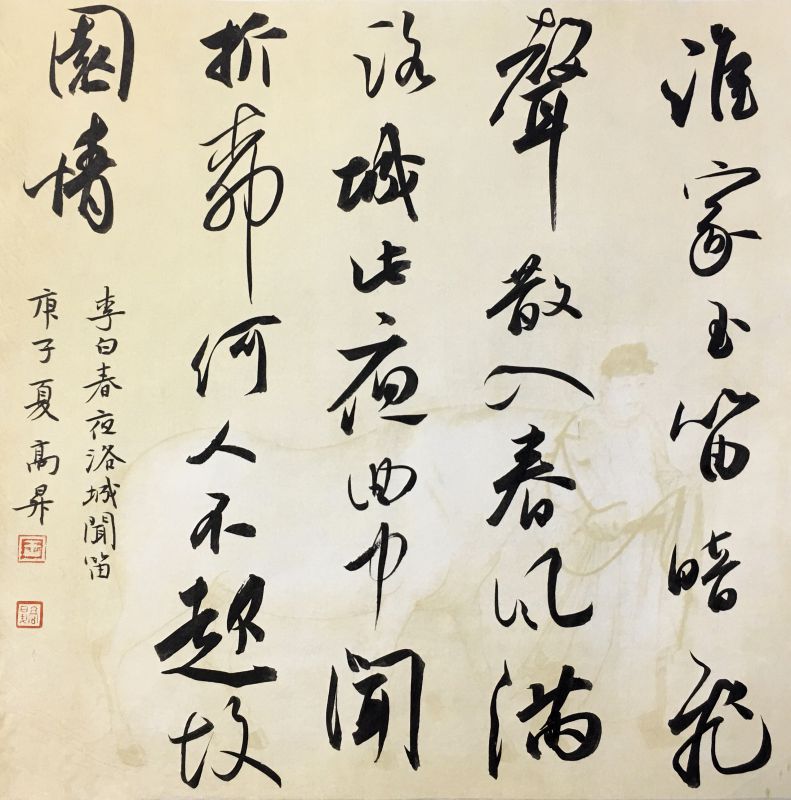 谁家玉笛暗飛
聲散入春风满
洛城此夜曲中聞
折柳何人不起故
園情
李白春夜洛城聞笛
庚子夏高昇